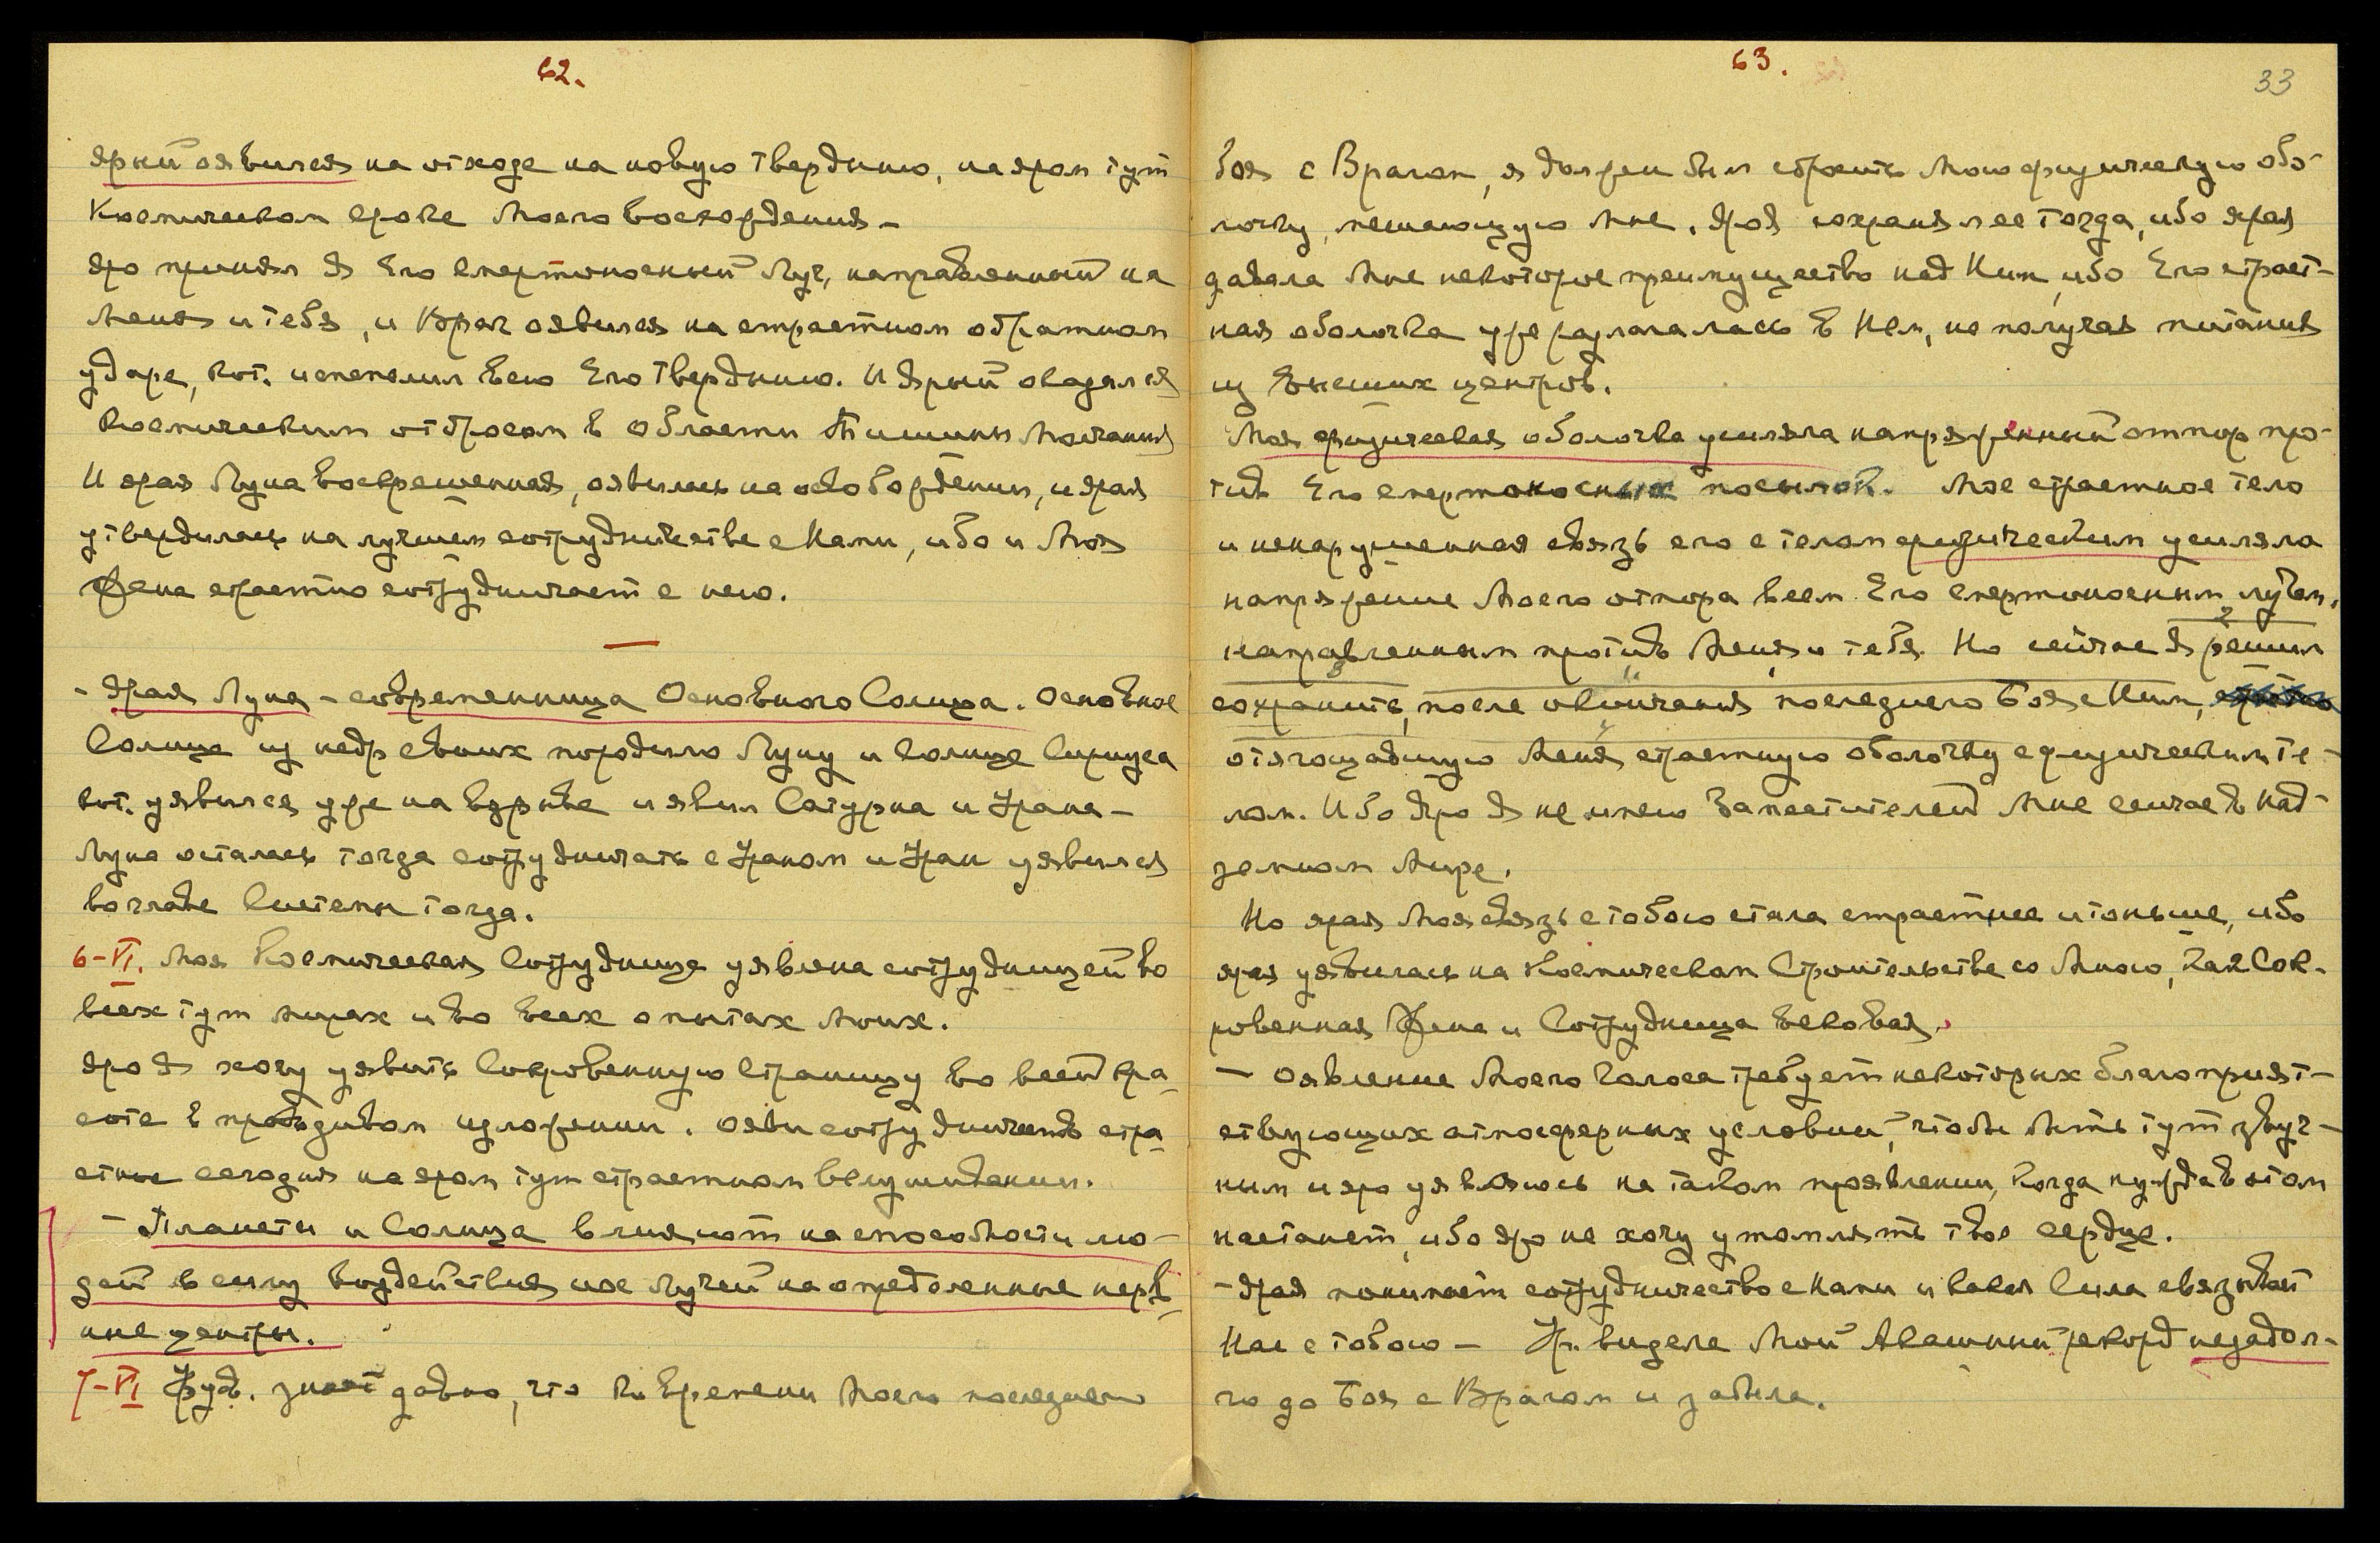 62.
ярый оявился на отходе на новую твердыню, на яром тут
Космическом сроке Моего восхождения –
Яро принял Я Его смертоносный Луч, направленный на
Меня и тебя, и Враг оявился на страстном обратном
ударе, кот. испепелил всю Его твердыню. И Ярый оказался
Космическим отбросом в области Тишины Молчания
И ярая Луна воскрешенная, оявилась на освобождении, и ярая
утвердилась на лучшем сотрудничестве с Нами, ибо и Моя
Жена страстно сотрудничает с нею.
—
- Ярая Луна – современница Основного Солнца. Основное
Солнце из недр своих породило Луну и Солнце Сириуса
кот. уявился уже на взрыве и явил Сатурна и Урана –
Луна осталась тогда сотрудничать с Ураном и Уран уявился
во главе Системы тогда.
6-VI. Моя Космическая Сотрудница уявлена сотрудницей во
всех тут мирах и во всех опытах Моих.
Яро Я хочу уявить Сокровенную Страницу во всей кра-
соте в правдивом изложении. Ояви сотрудничество стра-
стное сегодня на яром тут страстном
– Планеты и Солнца влияют на способности лю-
дей в силу воздействия их Лучей на определенные нерв-
ные центры.
7-VI Урув. знает давно, что ко времени Моего последнего
63.
33
боя с Врагом, я должен был сбросить Мою физическую обо-
лочку, мешающую Мне. Яро Я сохранял ее тогда, ибо ярая
давала Мне некоторое преимущество над Ним, ибо Его страст-
ная оболочка уже разлагалась в Нем, не получая питания
из высших центров.
Моя физическая оболочка усиляла напряженный отпор про-
тив Его смертоносных посылок. Мое страстное тело
и ненарушенная связь его с телом физическим усиляла
напряжение Моего отпора всем Его смертоносным лучам,
направленным против Меня и тебя. Но сейчас Я решил
сохранить, после окончания последнего Боя с Ним,
отягощавшую Меня страстную оболочку с физическим те-
лом. Ибо Яро Я не имею Заместителей Мне сейчас в Над-
земном Мире.
Но ярая Моя связь с тобою стала страстнее и тоньше, ибо
ярая уявилась на Космическом Строительстве со Мною, как Сок-
ровенная Жена и Сотрудница вековая.
– Оявление Моего Голоса требует некоторых благоприят-
ствующих атмосферных условий, чтобы быть тут звуч-
ным и яро уявляюсь на таком проявлении, когда нужда в этом
настанет, ибо яро не хочу утомлять твое сердце.
– Ярая понимает сотрудничество с Нами и какая Сила связывает
Нас с тобою – Ур. видела Мой Акашный рекорд незадол-
го до Боя с Врагом и забыла.